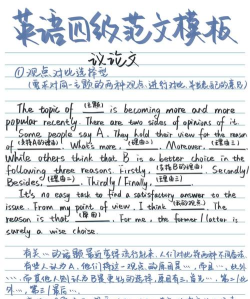 英语四级范文模板
议论文
①观点对比选择型
(要求对同一主题的两种观点进行对比,并表明己的意见)
The topic of (主题) is becoming more and more
popular recently. There are two sides of opinions of it.
Some people say A. They hold their view for the reason
of (支持A的理由). What's more, (理由二). Moreover, (理由三).
While others think that B is a better choice in the
following three reasons. Firstly, (支持B的理由). Secondly/
Besides, (理由二). Thirdly/Finally, (理由三).
It's no easy task to find a satisfactory answer to the
issue. From my point of view, I think (我的观点). The
reason is that (原因). For me, the former/latter is
surely a wise choice.
有关…的话题最近变得流行起来,人们对此持两种不同看法.